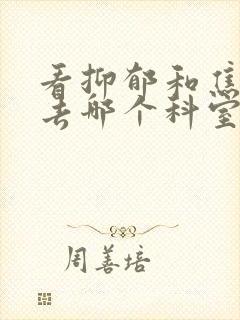 看抑郁和焦
去哪个科室
周善培